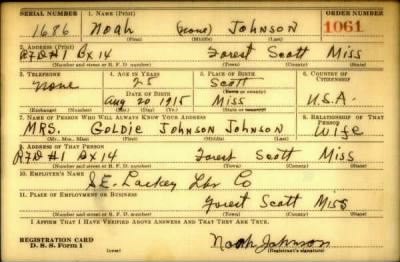 SERIAL NUMBER 1. NAME (Print) ORDER NUMBER
1686 Noah (none) Johnson 1061
2. ADDRESS (Print)
RFD #1 Bx 14 Forest Scott Miss
(Number and street or R. F. D. number) (Town) (County) (State)
3. TELEPHONE 4. AGE IN YEARS 5. PLACE OF BIRTH 6. COUNTRY OF CITIZENSHIP
none 25 Scott
DATE OF BIRTH (Town or county)
Aug 20 1915 Miss U.S.A.
(Exchange) (Number) (Mo.) (Day) (Yr.) (State or country)
7. NAME OF PERSON WHO WILL ALWAYS KNOW YOUR ADDRESS 8. RELATIONSHIP OF THAT PERSON
MRS. Goldie Johnson Johnson Wife
(Mr., Mrs., Miss) (First) (Middle) (Last)
9. ADDRESS OF THAT PERSON
RFD #1 Bx 14 Forest Scott Miss
(Number and street or R. F. D. number) (Town) (County) (State)
10. EMPLOYER'S NAME
S.E. Lackey Lbr Co
11. PLACE OF EMPLOYMENT OR BUSINESS
Forest Scott Miss
(Number and street or R. F. D. number) (Town) (County) (State)
I AFFIRM THAT I HAVE VERIFIED ABOVE ANSWERS AND THAT THEY ARE TRUE.
REGISTRATION CARD
D. S. S. Form 1 Noah Johnson
(Registrant's signature)